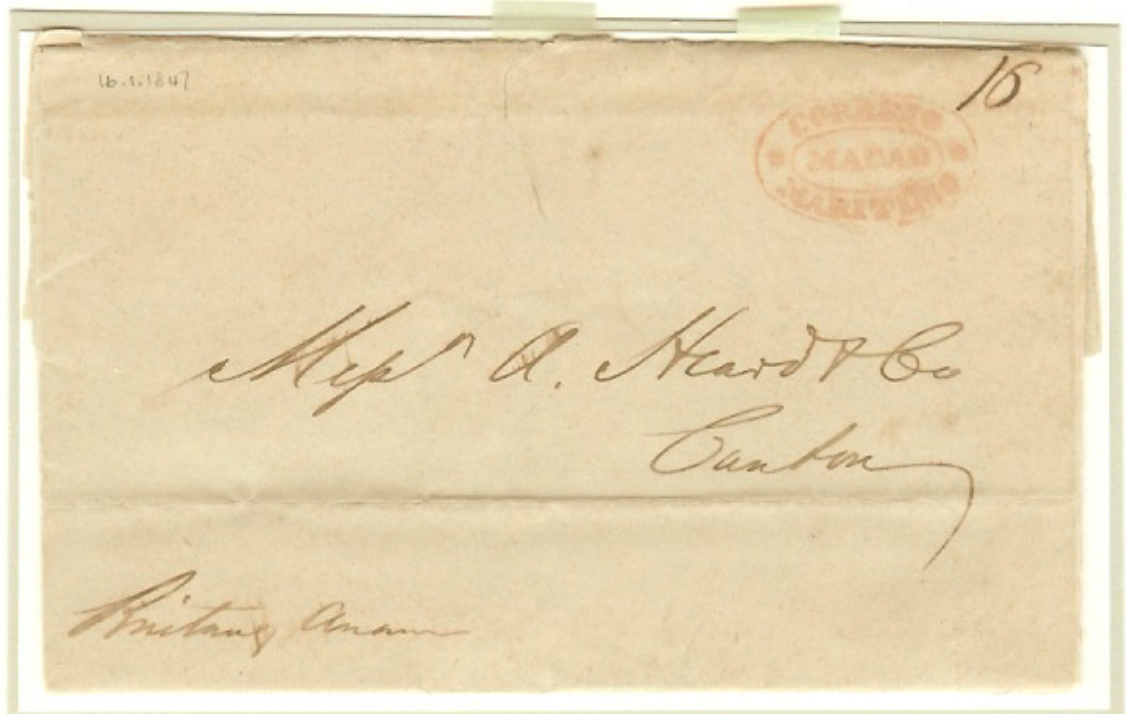 16.1.1847
16
CORREIO
MACAO
MARITIMO
Messrs A. Heard & Co
Canton